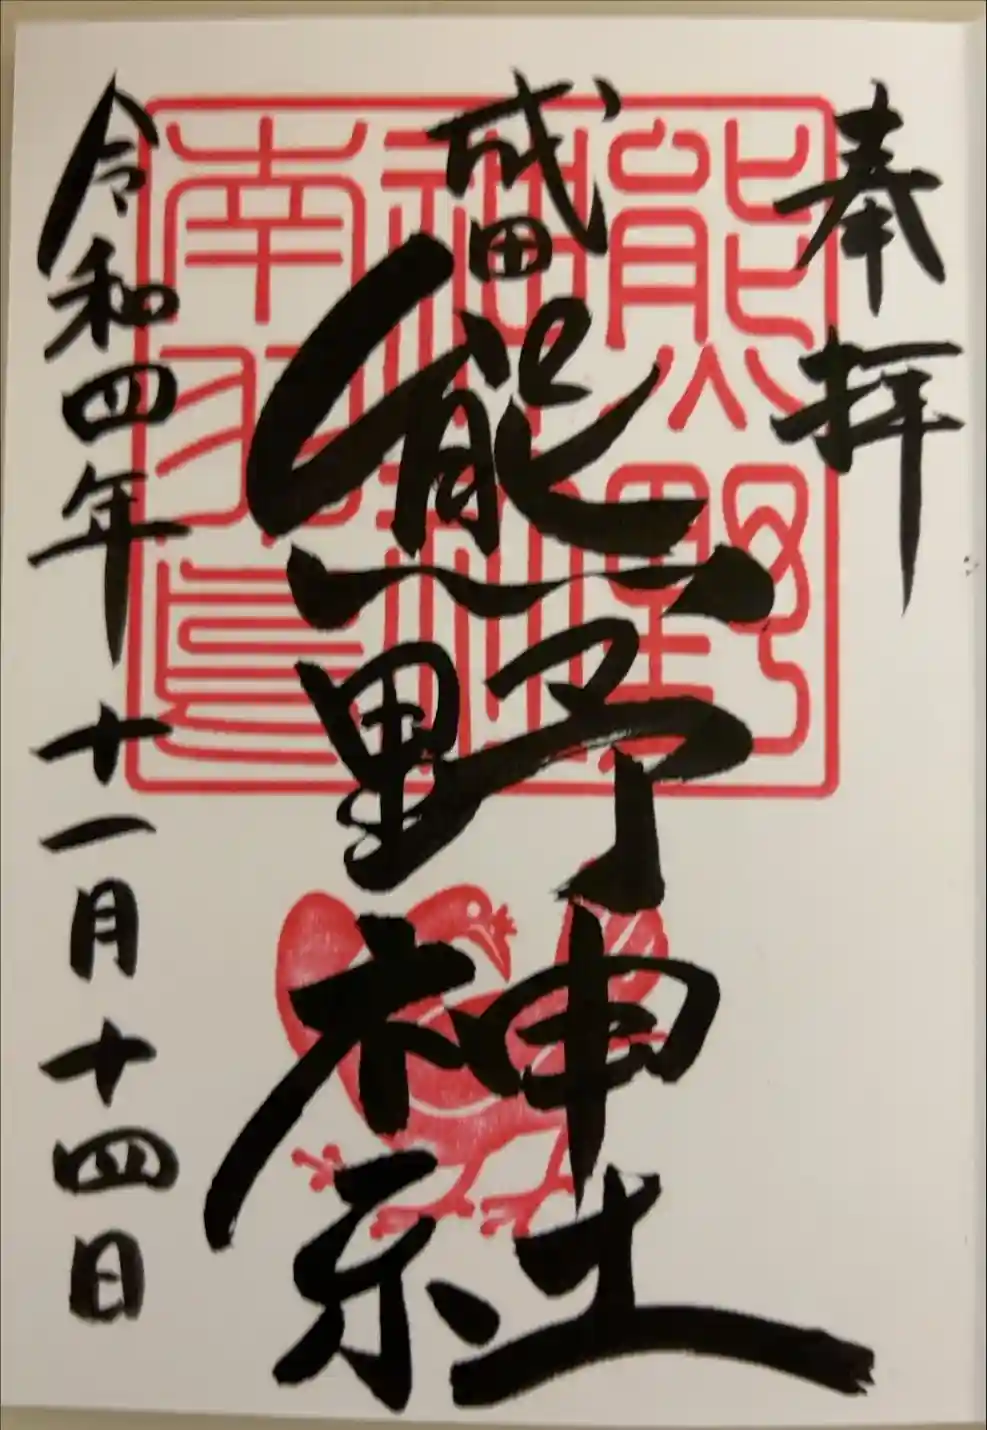 奉拝
成田
熊野神社
令和四年十一月十四日
熊野
神社
南